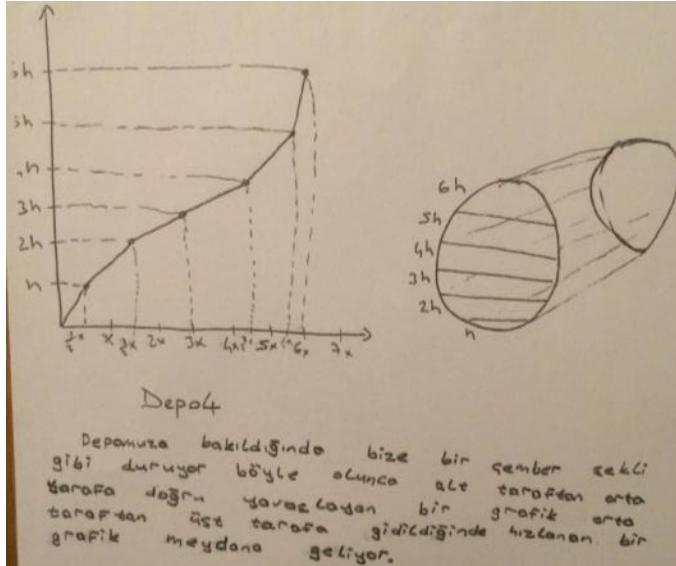 6h
5h
4h
3h
2h
h
x
2x
3x
4x
5x
6x
7x
6h
5h
4h
3h
2h
h
Depo4
Depomuza bakıldığında bize bir çember şekli
gibi duruyor böyle olunca alt taraftan orta
tarafa doğru yavaşlayan bir grafik orta
taraftan üst tarafa gidildiğinde hızlanan bir
grafik meydana geliyor.